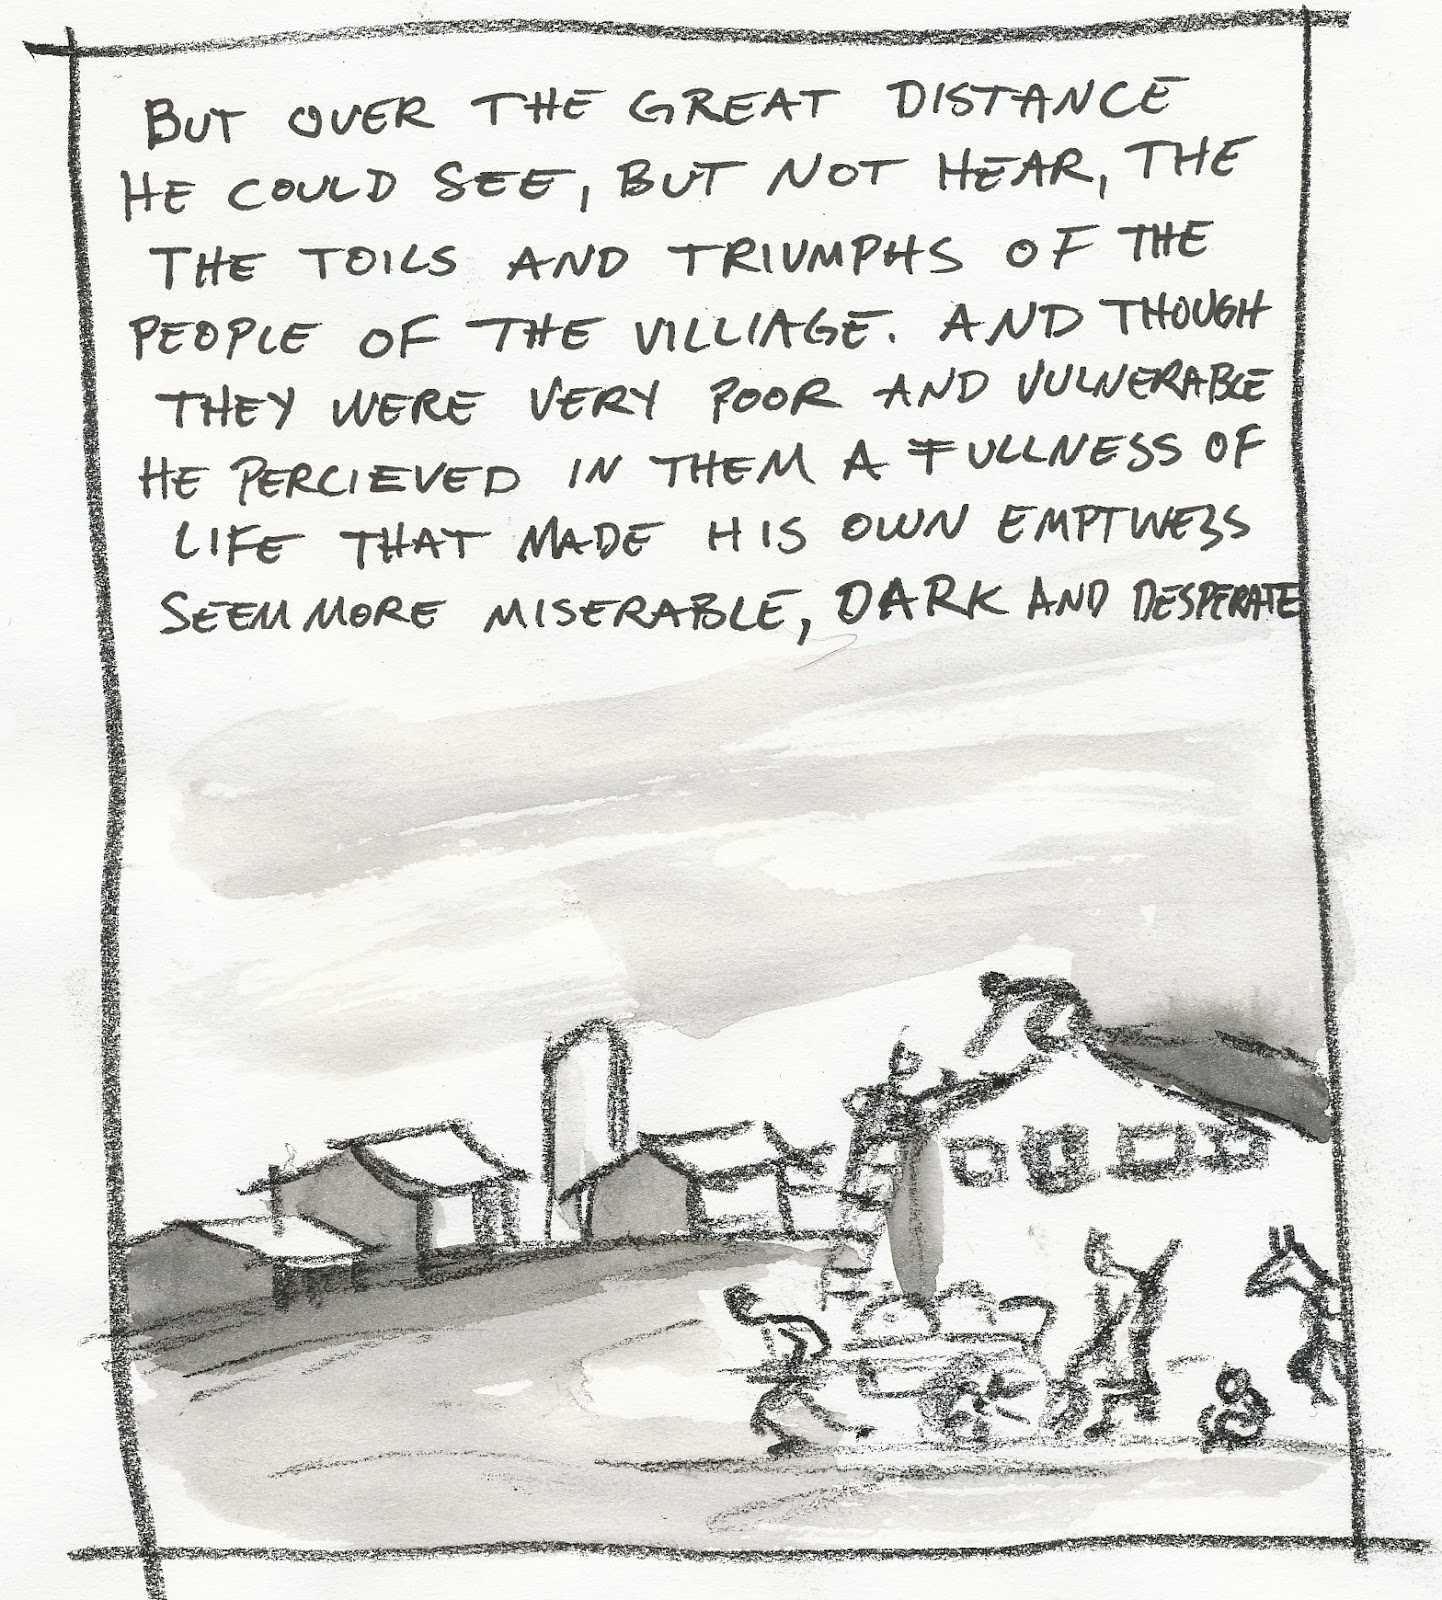 BUT OVER THE GREAT DISTANCE
HE COULD SEE, BUT NOT HEAR, THE
THE TOILS AND TRIUMPHS OF THE
PEOPLE OF THE VILLIAGE. AND THOUGH
THEY WERE VERY POOR AND VULNERABLE
HE PERCIEVED IN THEM A FULLNESS OF
LIFE THAT MADE HIS OWN EMPTINESS
SEEM MORE MISERABLE, DARK AND DESPERATE